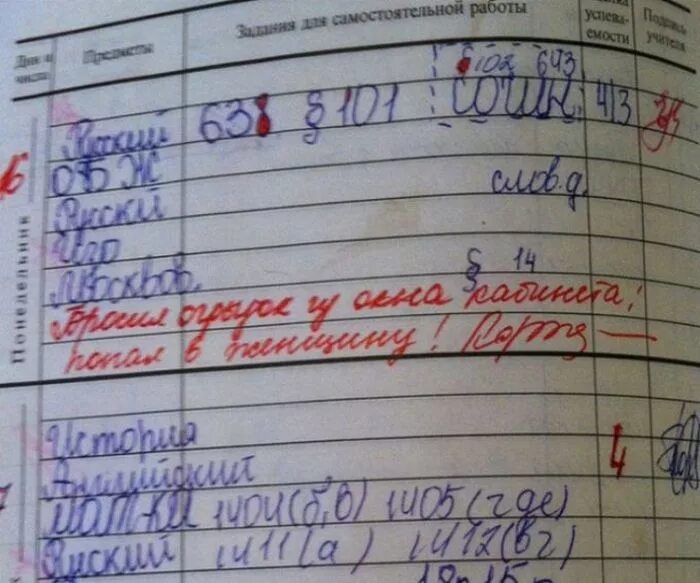 Дни и числа Предметы Задания для самостоятельной работы успева-емости Подпись учителя
§102 643
Русский 638 § 101 СОЧИН. 4/3
16 ОБЖ
Понедельник
Русский слов.д.
Изо
Москвов. § 14
Бросил огрызок из окна кабинета,
попал в женщину!
История
Английский 4
7 мат-ка 1404(б,в) 1405(где)
Русский 1411(а) 1412(вг)